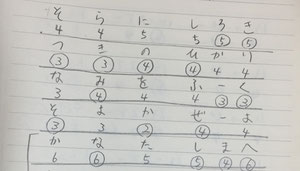 そ ら に し ろ き
4 4 5 5 ⑤ ⑤
つ き の ひ か り
③ ③ ④ ④ 4 4
な み を ふ ー く
3 ④ 4 4 ③ ③
そ よ か ぜ ー よ
③ 3 ② ④ 4
か な た し ま へ
6 ⑥ 5 ⑤ ④ ⑥